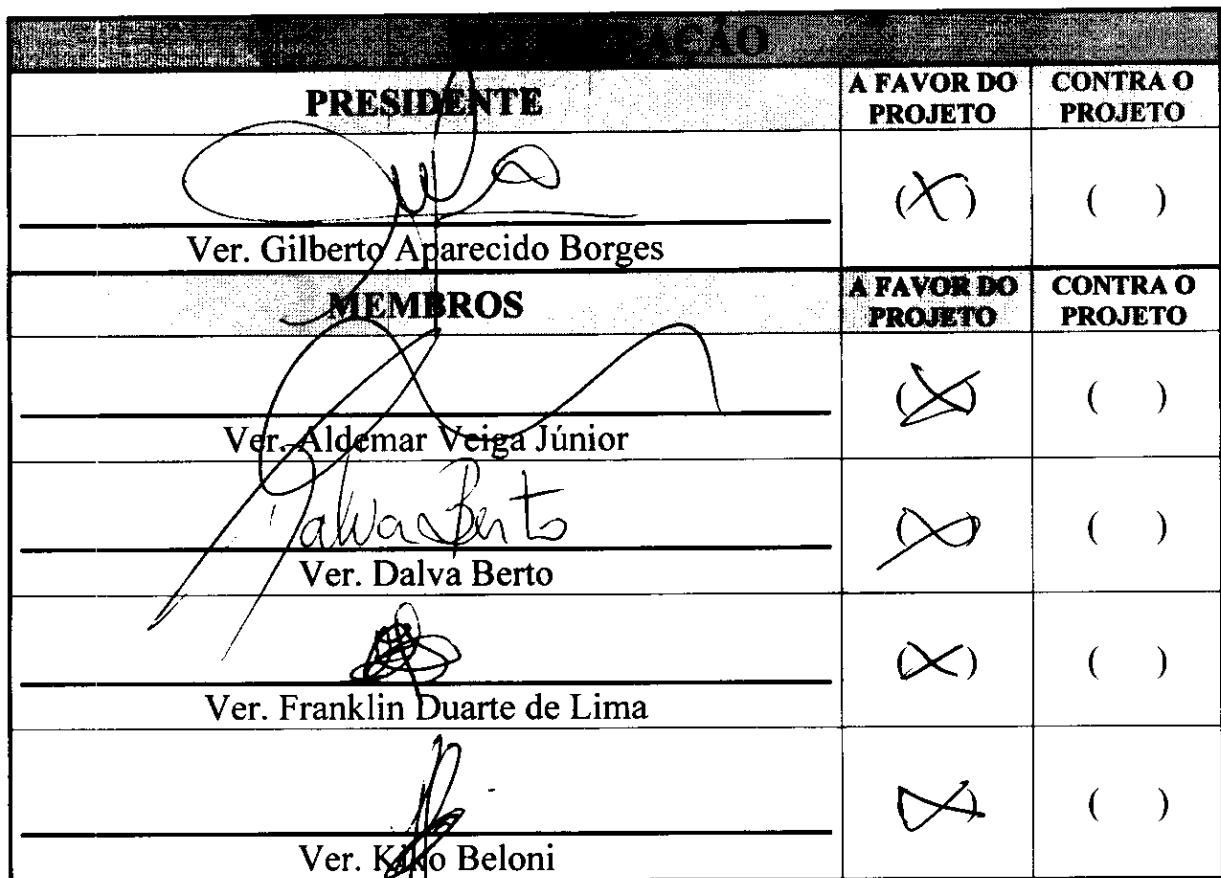 PRESIDENTE
A FAVOR DO PROJETO
CONTRA O PROJETO
(X) ( )
Ver. Gilberto Aparecido Borges
MEMBROS
A FAVOR DO PROJETO
CONTRA O PROJETO
(X) ( )
Ver. Aldemar Veiga Júnior
Dalva Berto
(X) ( )
Ver. Dalva Berto
(X) ( )
Ver. Franklin Duarte de Lima
(X) ( )
Ver. Kiko Beloni